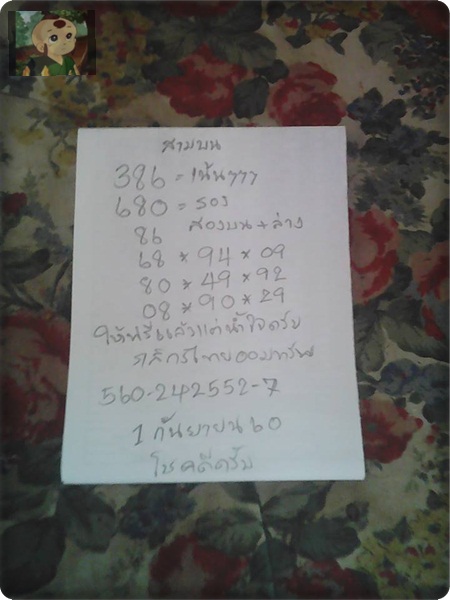 สามบน
386 = เน้นๆๆๆ
680 = รอง
86 สองบน + ล่าง
68 * 94 * 09
80 * 49 * 92
08 * 90 * 29
ให้ฟรีแล้วแต่น้ำใจครับ
กสิกรไทยออมทรัพย์
560-242552-7
1 กันยายน 60
โชคดีครับ